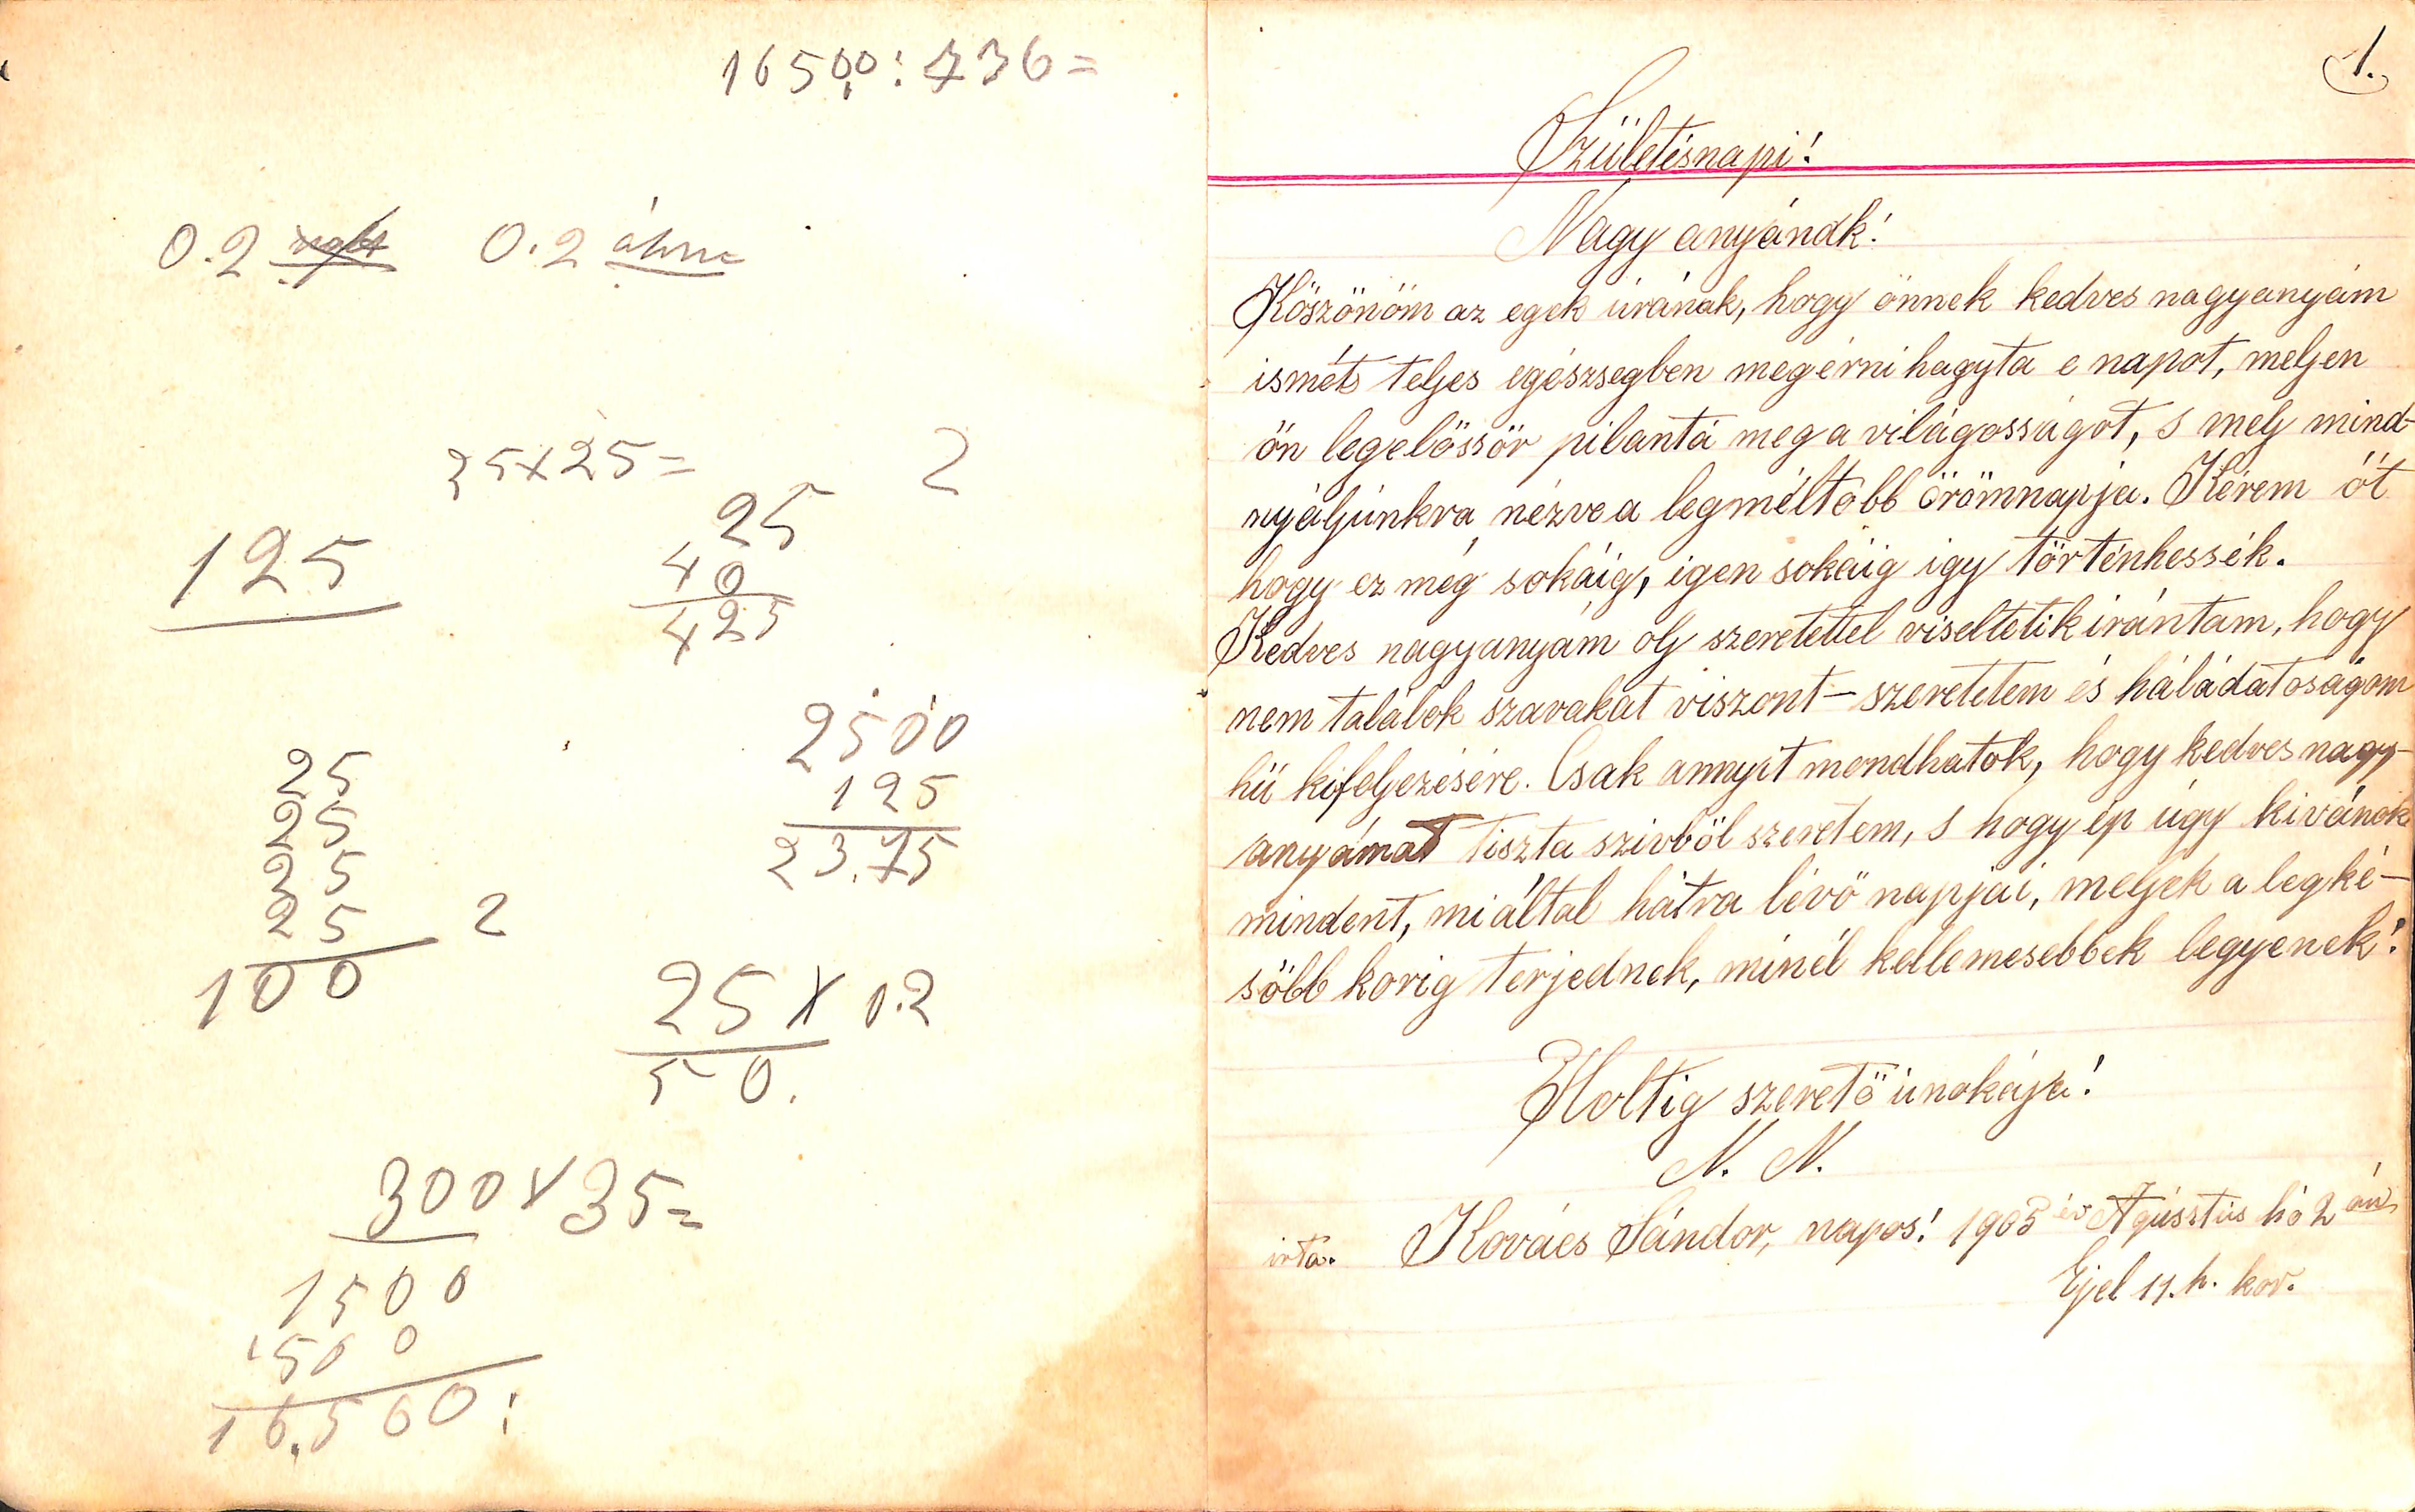 16500 : 736 =
0.2 0.2
25x25=
2
125
25
40
425
2500
125
23.75
25
25
25
25
100
2
25 x 0.2
50.
300x35=
1500
1500
16.500:
1.
Születésnapi!
Nagy anyánák!
Köszönöm az egek úrának, hogy önnek kedves nagyanyám
ismét teljes egészsegben megérni hagyta e napot, meljen
ön legelössör pilantá meg a világosságot, s melj mind-
nyáljúnkra nézve a legméltóbb örömnapja. Kérem őt
hogy ez még sokáig, igen sokáig igy történhessék.
Kedves nagyanyám olj szeretettel viseltetik irántam, hogy
nem találok szavakat viszont- szeretetem és háládatoságom
hű kifeljezésére. Csak annyit mondhatok, hogy kedves nagy-
anyámat tiszta szivböl szeretem, s hogy ép úgy kivánok
mindent, mi által hátra lévö napjai, meljek a legké-
söbb korig terjednek, minél kellemesebbek legyenek!
Holtig szeretö únokája!
N. N.
irta. Kovács Sándor, napos! 1905 év Agúsztús hó 2 án
Ejel 11. h. kor.